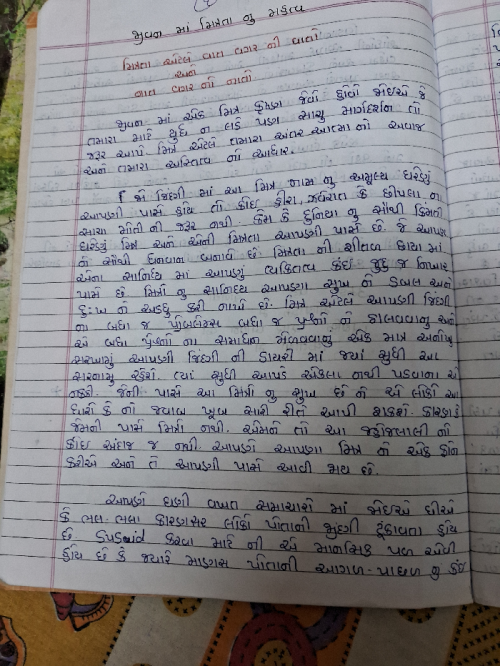 જીવન માં મિત્રતા નુ મહત્વ
મિત્રતા એટલે વાત વગર ની વાતો
અને
વાત વગર નો નાતો
જીવન માં એક મિત્ર કૃષ્ણ જેવો હોવો જોઇએ જે
તમારા માટે યુદ્ધ ન લડે પણ સાચુ માર્ગદર્શન તો
જરૂર આપે મિત્ર એટલે તમારા અંતર આત્મા નો અવાજ
અને તમારા અસ્તિત્વ નો આધાર.
જો જિંદગી માં આ મિત્ર નામ નુ અમૂલ્ય ઘરેણું
આપણી પાસે હોય તો કોઇ હીરા, ઝવેરાત કે છીપલા ના
સાચા મોતી ની જરૂર નથી. કેમ કે દુનિયા નુ સૌથી કિંમતી
ઘરેણું મિત્ર અને એની મિત્રતા આપણી પાસે છે. જે આપણ
ને સૌથી ધનવાન બનાવે છે. મિત્રતા ની શીતલ છાયા માં
એના સાનિધ્ય માં આપણું વ્યક્તિત્વ કંઇક જુદુ જ નિખાર
પામે છે. મિત્રો નુ સાનિધ્ય આપણા સુખ ને ડબલ અને
દુઃખ ને અડધુ કરી નાખે છે. મિત્ર એટલે આપણી જિંદગી
ના બધા જ પ્રોબલેમ્સ બધા જ પ્રશ્નો ને ઠાલવવાનુ અને
એ બધા પ્રશ્નો ના સમાધાન મેળવવાનુ એક માત્ર અનોખુ
સરનામુ આપણી જિંદગી ની ડાયરી માં જ્યાં સુધી આ
સરનામુ રહેશે. ત્યાં સુધી આપણે એકલા નથી પડવાના એ
નક્કી. જેની પાસે આ મિત્રો નુ સુખ છે ને એ લોકો આ
વાતો કે નો જવાબ ખૂબ સારી રીતે આપી શકશે. કારણ કે
જેમની પાસે મિત્રો નથી. એમને તો આ જાહોજલાલી નો
કોઇ અંદાજ જ નથી. આપણે આપણા મિત્ર ને એક ફોન
કરીએ અને તે આપણી પાસે આવી જાય છે.
આપણે ઘણી વખત સમાચારો માં જોઇએ છીએ
કે ભલ-ભલા કારણસર લોકો પોતાની જીંદગી ટૂંકાવતા હોય
છે susaid કરવા માટે ની એ માનસિક પળ એવી
હોય છે કે જ્યારે માણસ પોતાની આગળ-પાછળ નુ કંઇ